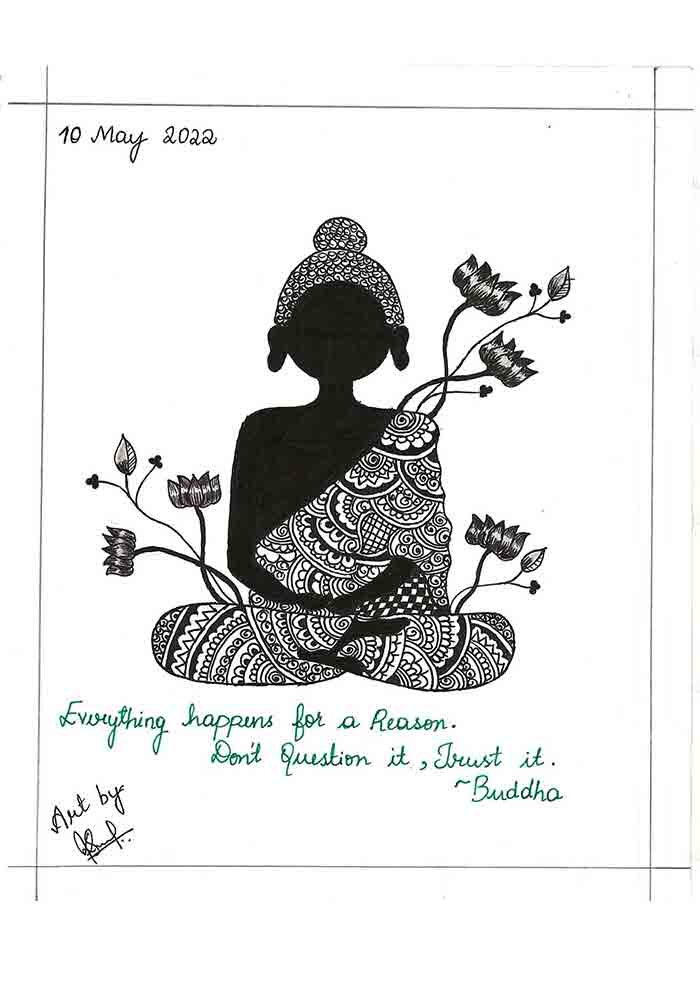 10 May 2022
Everything happens for a Reason.
Don't Question it, Trust it.
~Buddha
Art by-